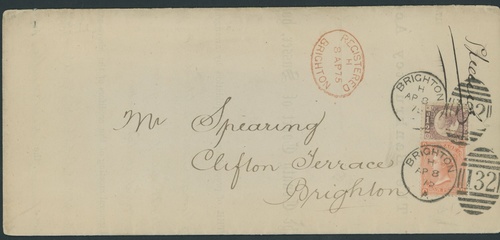 REGISTERED
H
8 AP 75
BRIGHTON
BRIGHTON
H
AP 8
75
132
Mr Spearing
Clifton Terrace
Brighton
BRIGHTON
H
AP 8
75
A
132